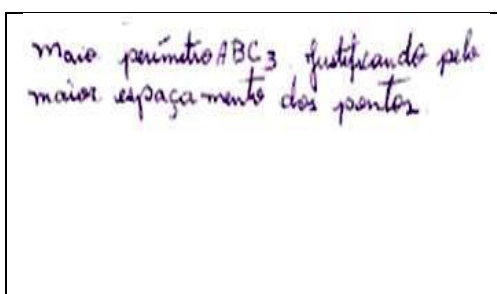 Maio perímetro ABC3 Justificando pelo
maior espaçamento dos pontos.